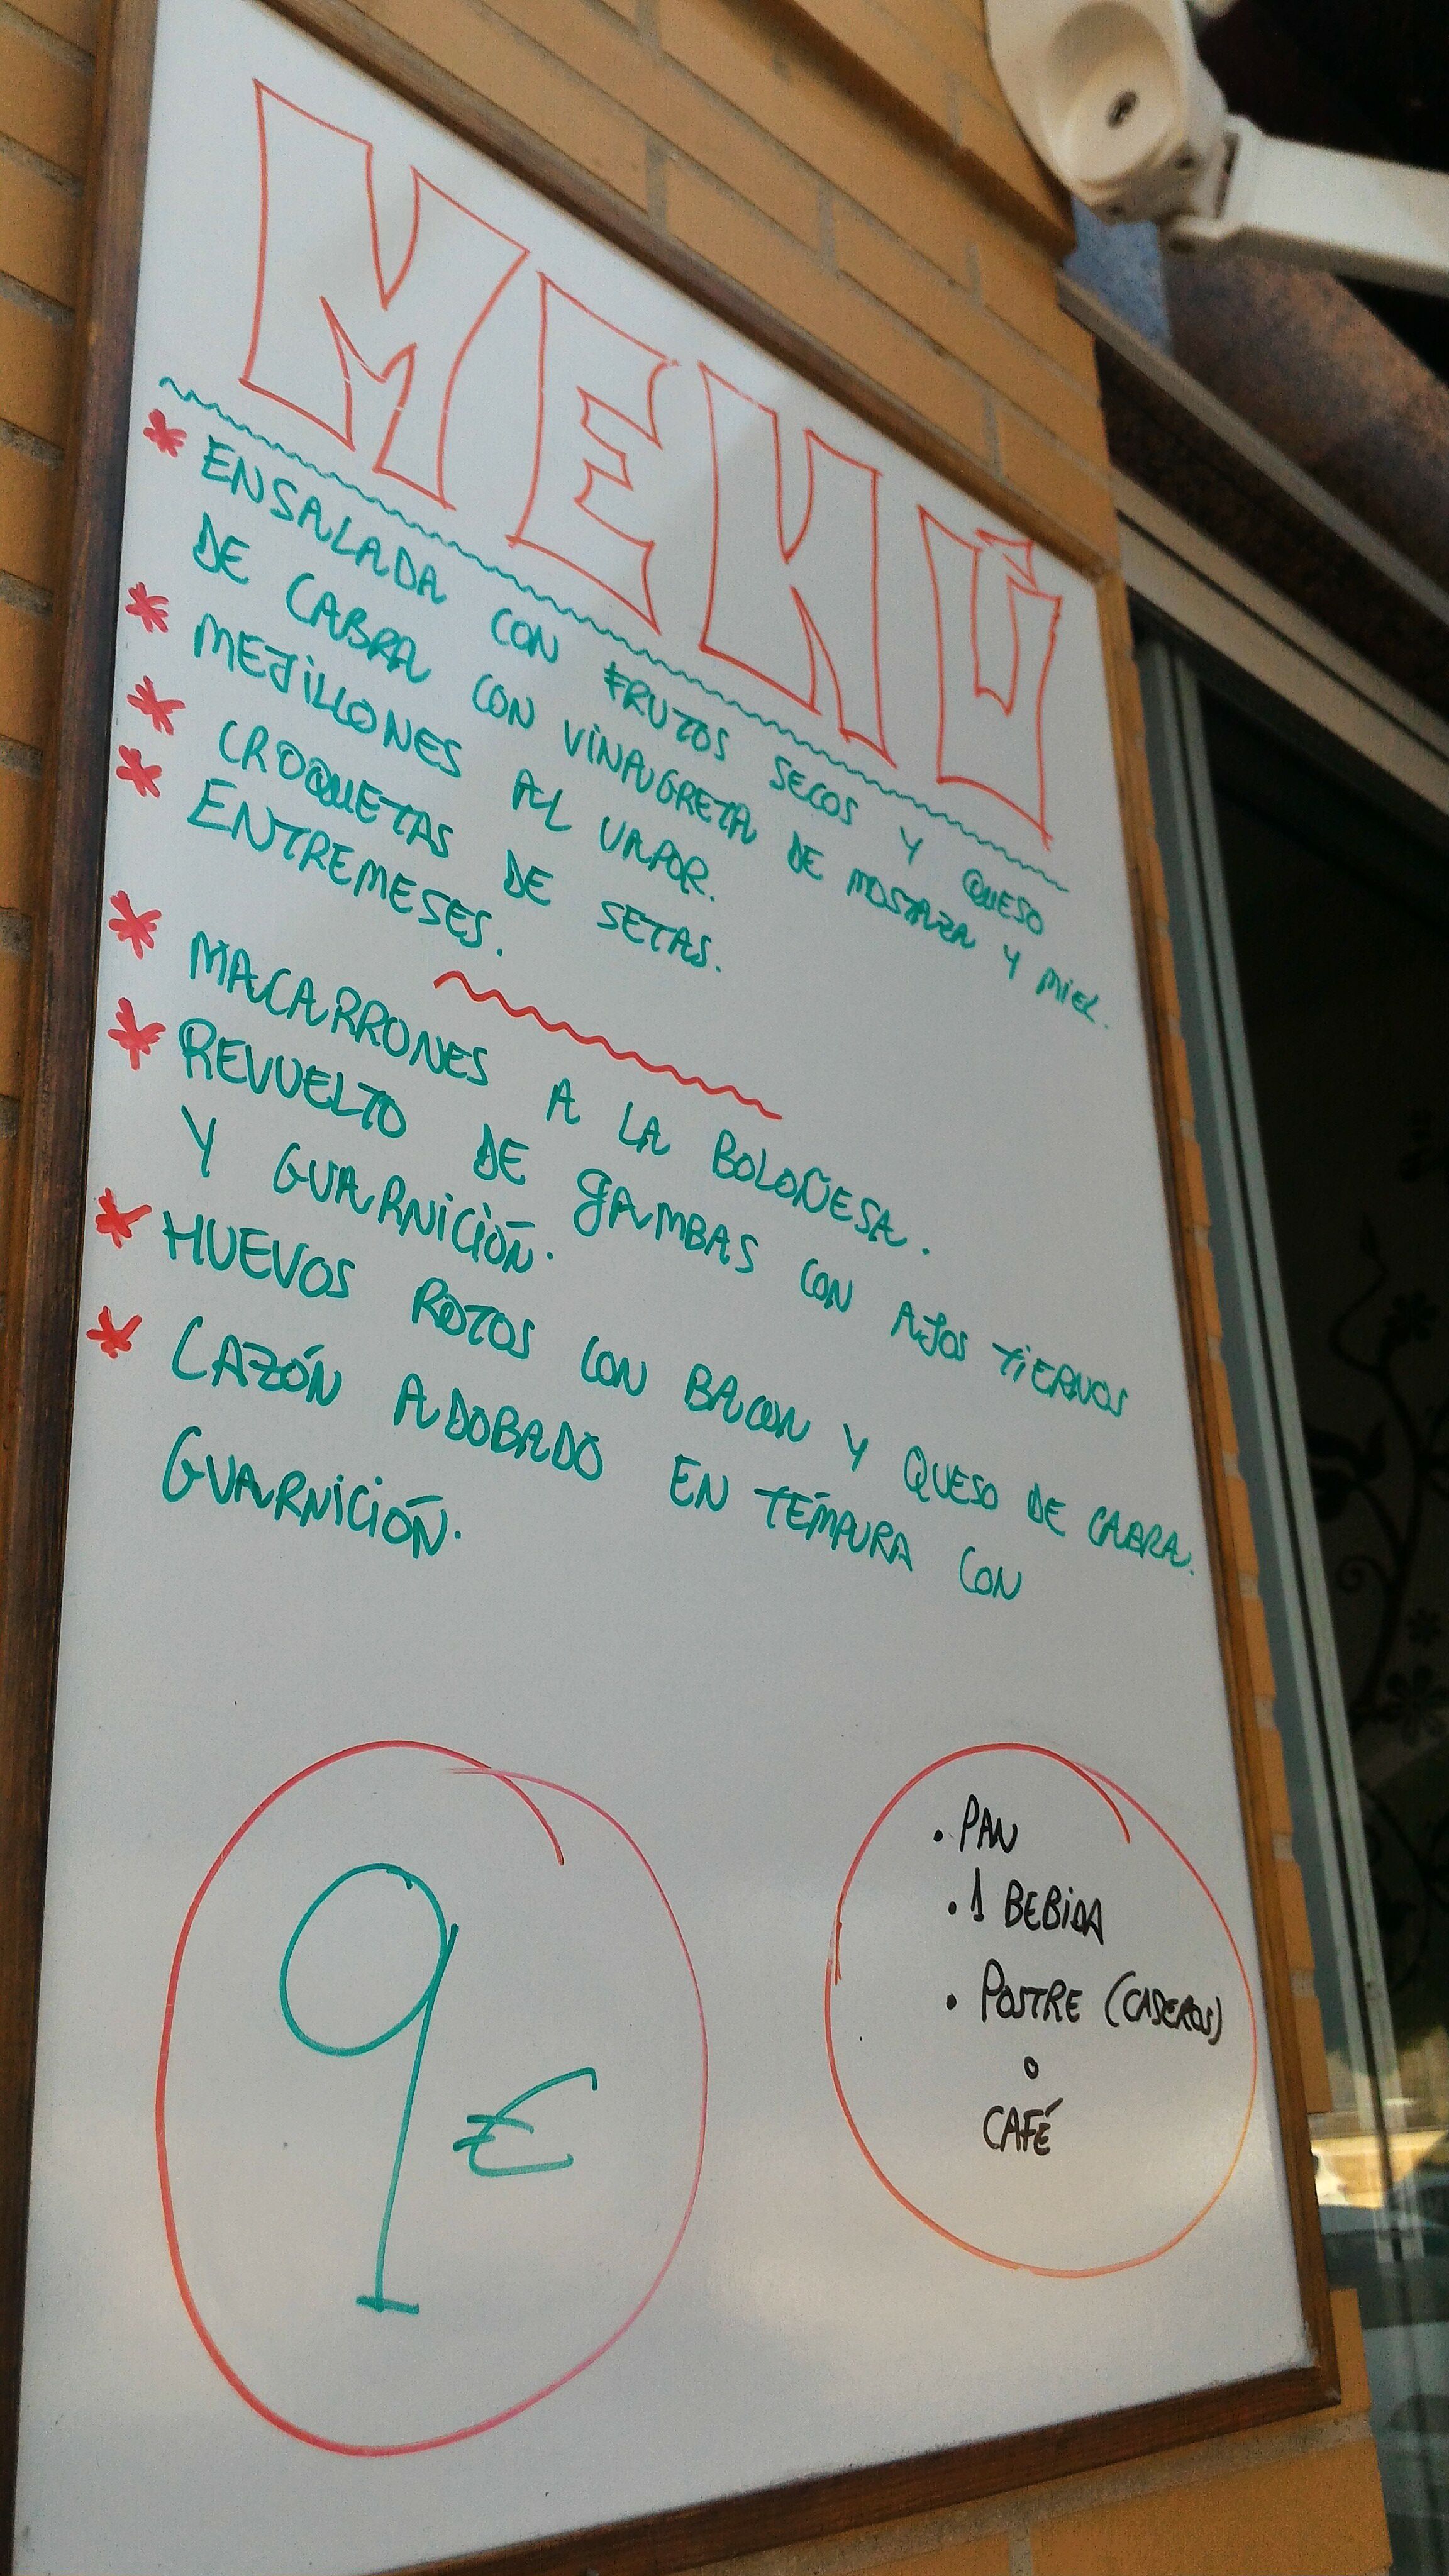 MENÚ
* ENSALADA CON FRUTOS SECOS Y QUESO
DE CABRA CON VINAGRETA DE MOSTAZA Y MIEL.
* MEJILLONES AL VAPOR.
* CROQUETAS DE SETAS.
* ENTREMESES.
* MACARRONES A LA BOLOÑESA.
* REVUELTO DE GAMBAS CON AJOS TIERNOS
Y GUARNICIÓN.
* HUEVOS ROTOS CON BACON Y QUESO DE CABRA.
* CAZÓN ADOBADO EN TÉMPURA CON
GUARNICIÓN.
9 €
· PAN
· 1 BEBIDA
· POSTRE (CASEROS)
o
CAFÉ